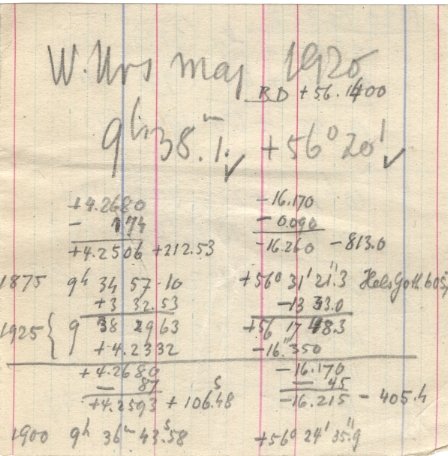 W. Urs maj 1920
BD +56.1400
9h 38.m1. ✓ +56° 20' ✓
+4.2680 -16.170
- 174 -0.090
+4.2506 +212.53 -16.260 -813.0
1875 9h 34 57.10 +56° 31' 21".3 HelsGoth 6059
+3 32.53 -13 33.0
1925 { 9 38 29 63 +56 17 48.3
+4.2332 -16".350
+4.2680 -16.170
- 87 - 45
+4.2593 +106.s48 -16.215 -405.4
1900 9h 36m 43.s58 +56° 24' 35".9